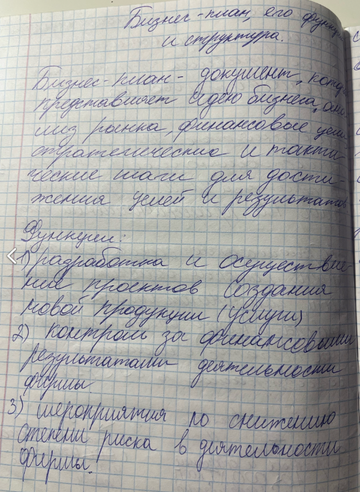 Бизнес-план, его функ
и структура.
Бизнес-план - документ, кото
представляет идею бизнеса, ана
лиз рынка, финансовые цели
стратегические и такти
ческие шаги для дости-
жения целей и результатов
Функции:
1) разработка и осуществле
ние проектов создания
новой продукции (услуги)
2) контроль за финансовыми
результатами деятельности
фирмы
3) мероприятия по снижению
степени риска в деятельности
фирмы.